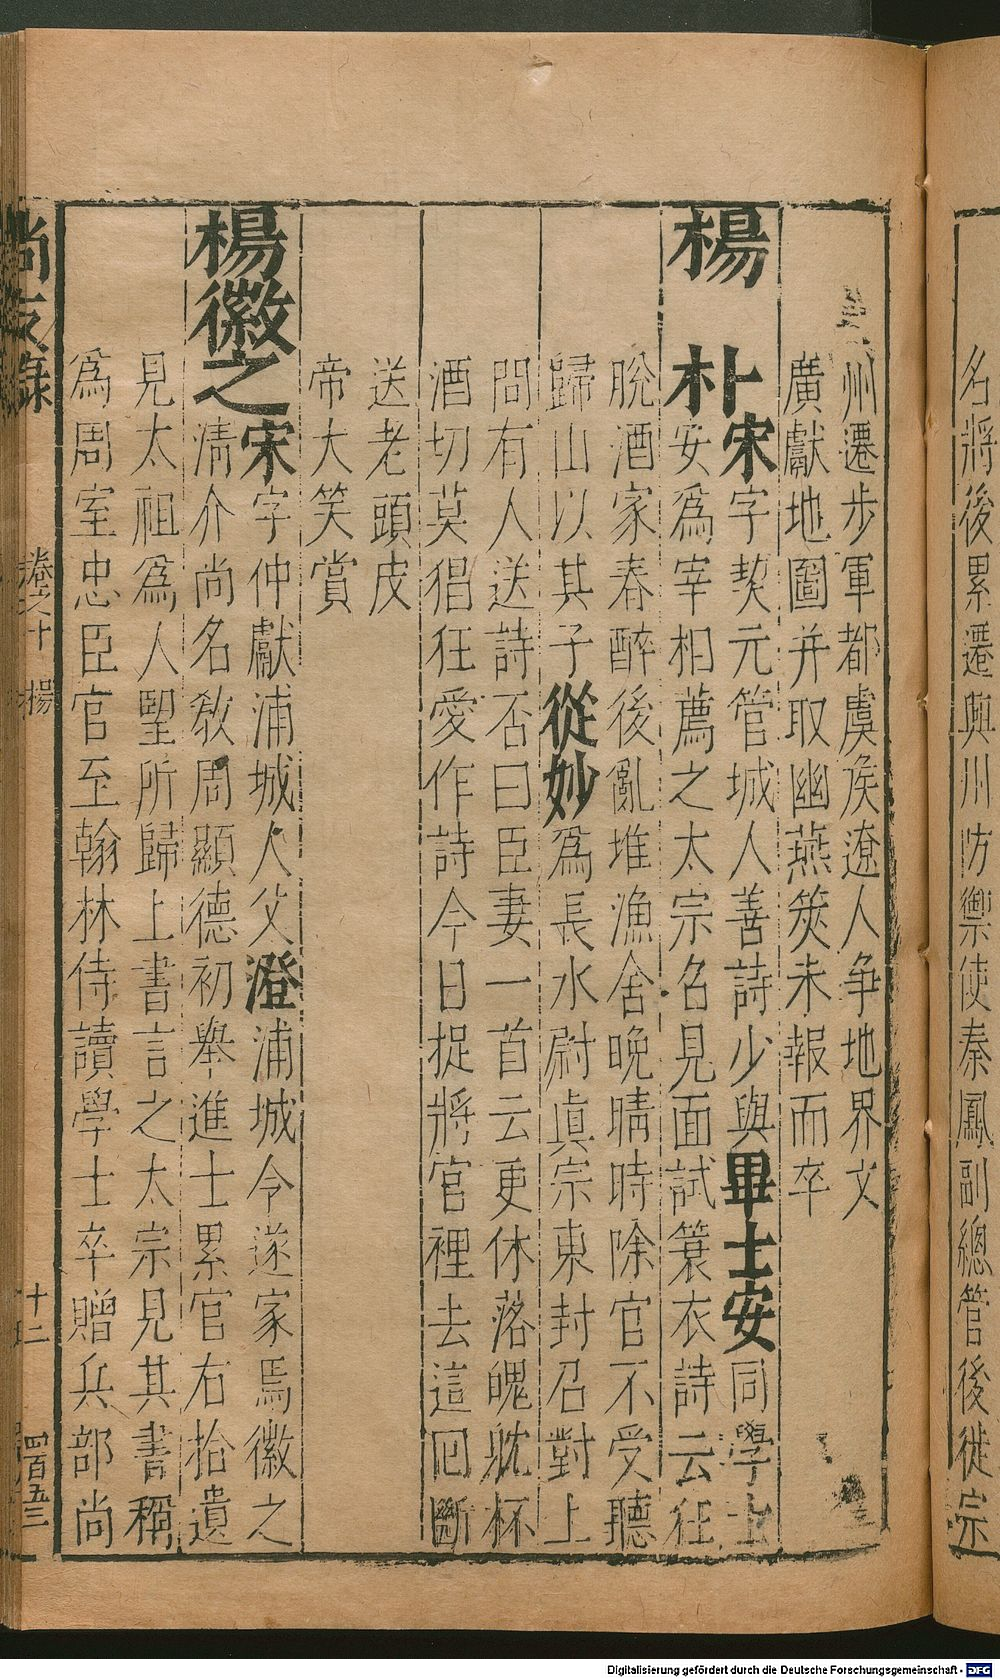 名將後累遷興州防禦使秦鳳副總管後徙宗
州遷步軍都虞侯遼人爭地界文
廣獻地圖并取幽燕筴未報而卒
楊朴宋字契元管城人善詩少與畢士安同學士
安爲宰相薦之太宗名見面試簑衣詩云狂
脫酒家春醉後亂堆漁舍晚晴時除官不受聽
歸山以其子從妙爲長水尉眞宗東封召對上
問有人送詩否曰臣妻一首云更休落魄躭杯
酒切莫猖狂愛作詩今日捉將官裡去這囘斷
送老頭皮
帝大笑賞
楊徽之宋字仲獻浦城人父澄浦城令遂家焉徽之
清介尚名敎周顯德初舉進士累官右拾遺
見太祖爲人朢所歸上書言之太宗見其書稱
爲周室忠臣官至翰林侍讀學士卒贈兵部尚
尚友錄 卷之十 楊 十二 四百五三
Digitalisierung gefördert durch die Deutsche Forschungsgemeinschaft - DFG